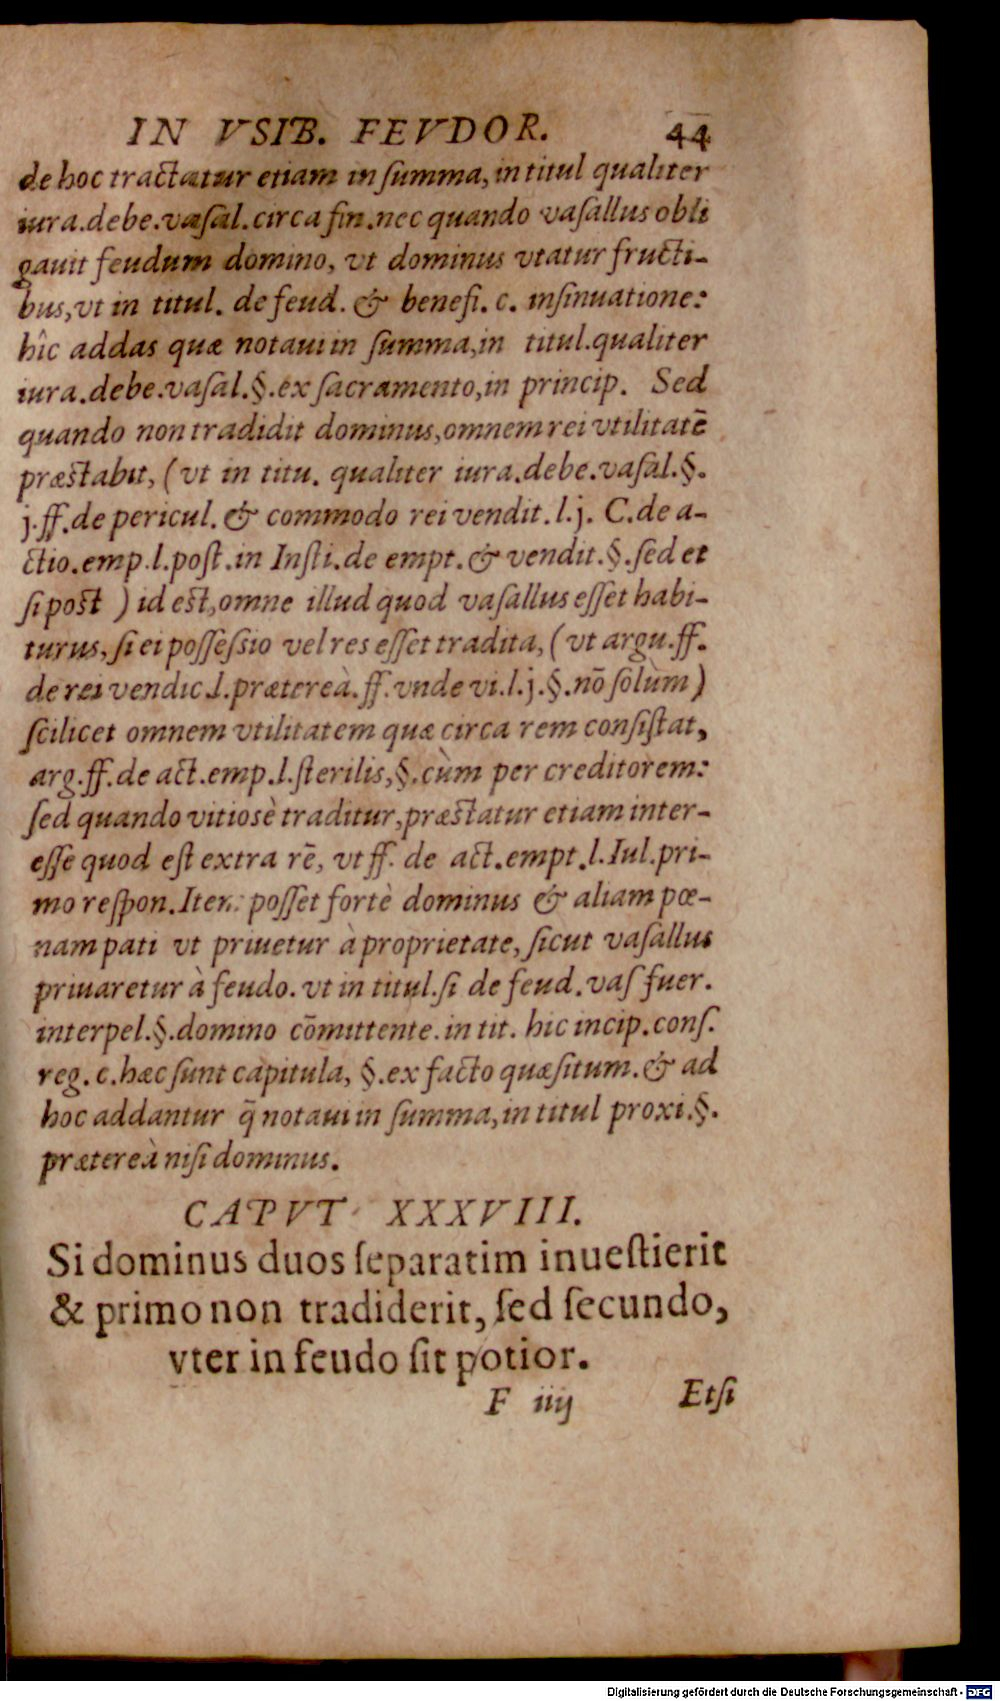 IN VSIB. FEVDOR. 44
de hoc tractatur etiam in ſumma, in titul qualiter
iura.debe.vaſal.circa fin.nec quando vaſallus obli
gauit feudum domino, vt dominus vtatur fructi-
bus,vt in titul. de feud. & benefi. c. inſinuatione:
hîc addas quæ notaui in ſumma,in titul.qualiter
iura.debe.vaſal.§.ex ſacramento,in princip. Sed
quando non tradidit dominus,omnem rei vtilitatē
præſtabit, (vt in titu. qualiter iura.debe.vaſal.§.
j.ff.de pericul. & commodo rei vendit.l.j. C.de a-
ctio.emp.l.poſt.in Inſti.de empt.& vendit.§.ſed et
ſi poſt ) id eſt,omne illud quod vaſallus eſſet habi-
turus, ſi ei poſſeſsio vel res eſſet tradita, (vt argu.ff.
de rei vendic.l.prætereà.ff.vnde vi.l.j.§.nō ſolùm)
ſcilicet omnem vtilitatem quæ circa rem conſiſtat,
arg.ff.de act.emp.l.ſterilis,§.cùm per creditorem:
ſed quando vitiosè traditur,præſtatur etiam inter-
eſſe quod eſt extra rē, vt ff. de act.empt.l.Iul.pri-
mo reſpon.Item poſſet fortè dominus & aliam pœ-
nam pati vt priuetur à proprietate, ſicut vaſallus
priuaretur à feudo. vt in titul.ſi de feud.vaſ fuer.
interpel.§.domino cōmittente.in tit. hic incip.conſ.
reg. c.hæc ſunt capitula, §.ex facto quæſitum.& ad
hoc addantur q̄ notaui in ſumma,in titul proxi.§.
prætereà niſi dominus.
CAPVT XXXVIII.
Si dominus duos ſeparatim inueſtierit
& primo non tradiderit, ſed ſecundo,
vter in feudo ſit potior.
F iiij Etſi
Digitalisierung gefördert durch die Deutsche Forschungsgemeinschaft - DFG